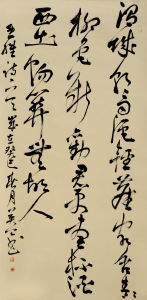 渭城朝雨浥輕塵客舍青青
柳色新勸君更盡一杯酒
西出陽關無故人
王維詩 歲在癸 月